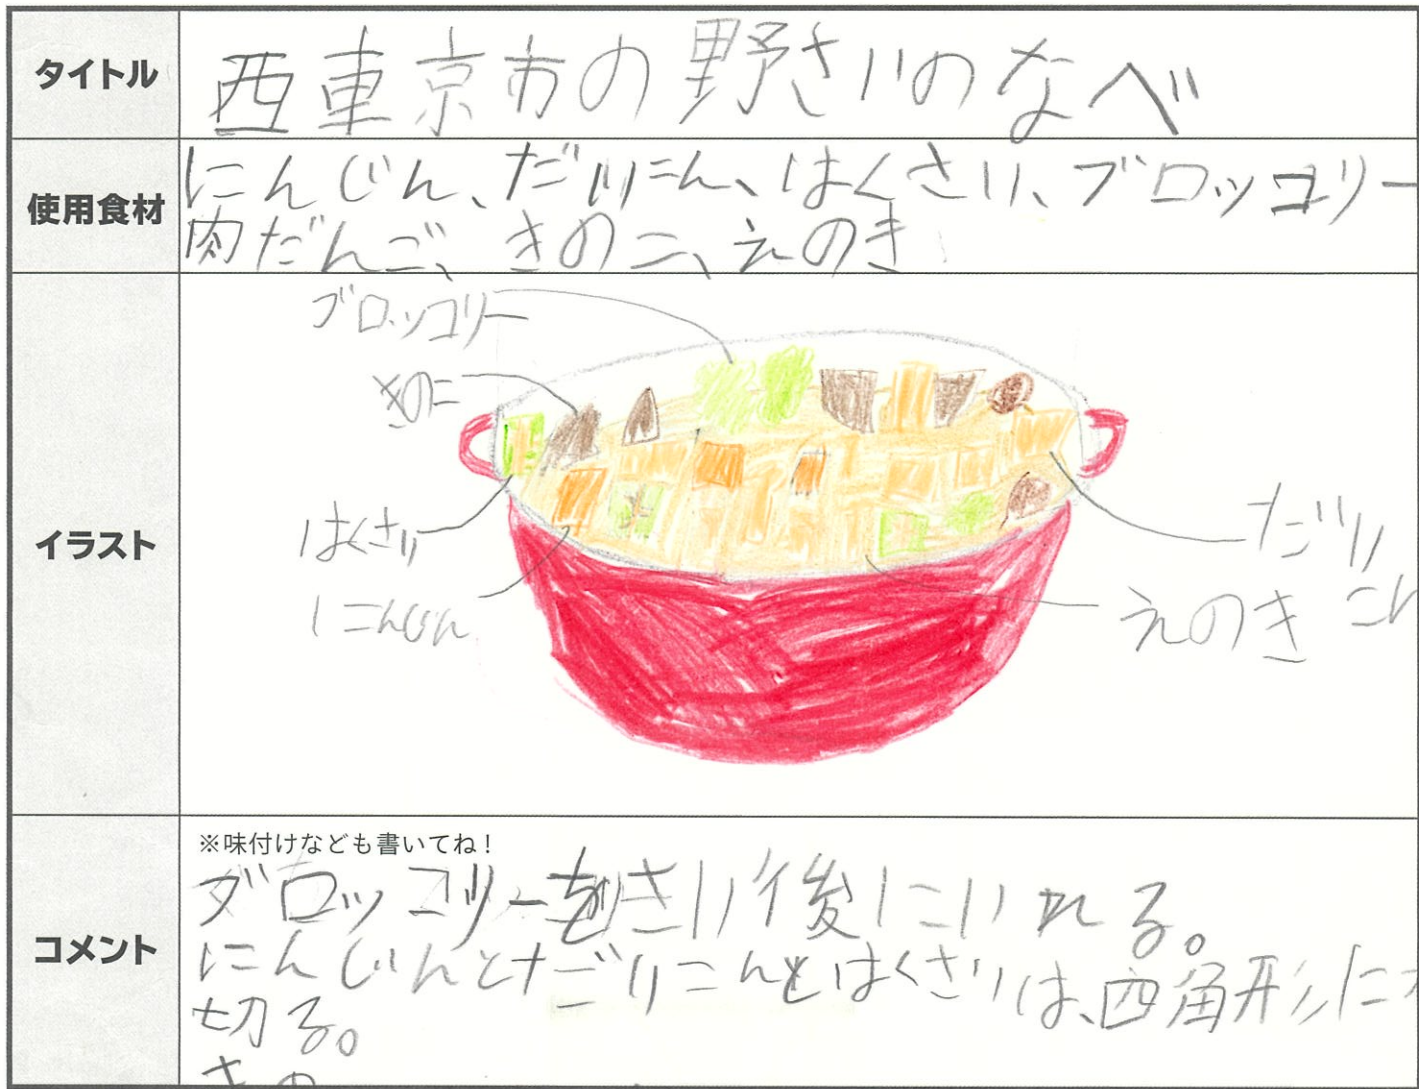 タイトル
西東京市の野さいのなべ
使用食材
にんじん、だいこん、はくさい、ブロッコリー
肉だんご、きのこ、えのき
イラスト
ブロッコリー
きのこ
はくさい
にんじん
だい
こん
えのき
コメント
※味付けなども書いてね！
ブロッコリーをさい後にいれる。
にんじんとだいこんとはくさいは、四角形に
切る。
きの